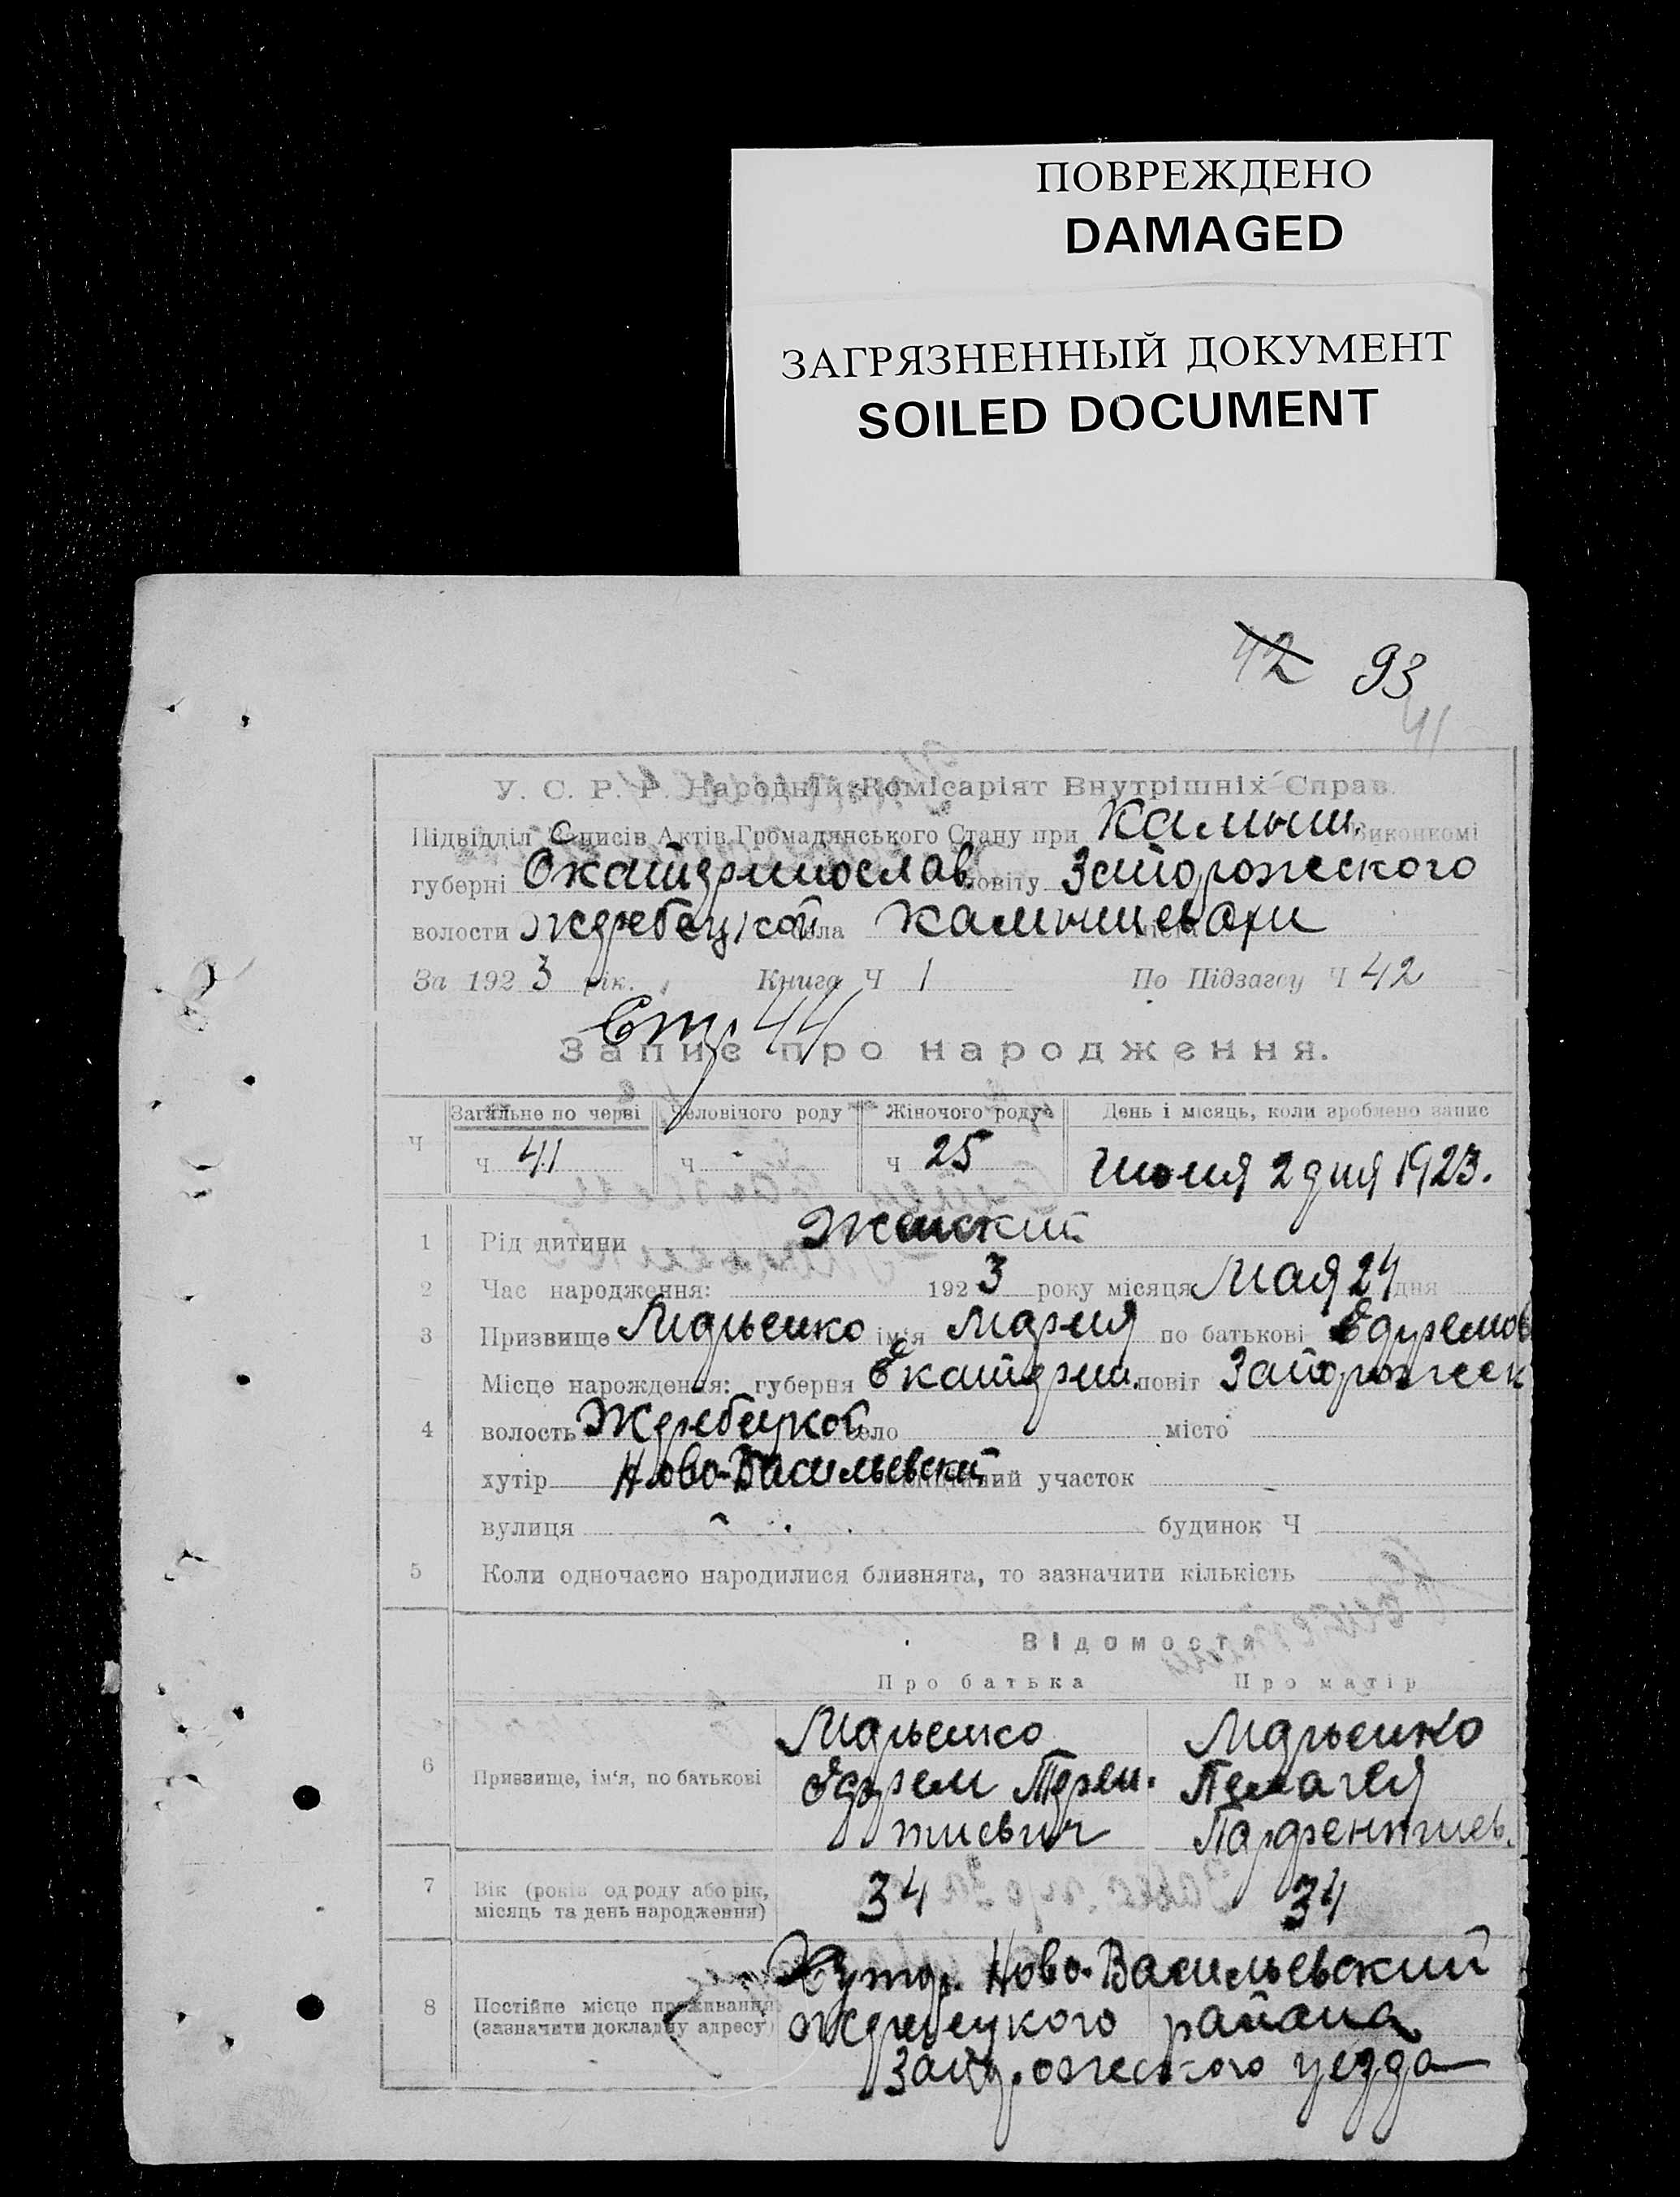 ПОВРЕЖДЕНО
DAMAGED
ЗАГРЯЗНЕННЫЙ ДОКУМЕНТ
SOILED DOCUMENT
42 93
41
У. С. Р. Р. Народній Комісаріят Внутрішніх Справ.
Підвідділ Записів Актів Громадянського Стану при Камыш. Виконкомі
губерні Екатеринослав. повіту Запорожского
волости Жеребецкой села Камышевахи
За 1923 рік. Книга Ч 1 По Підзагсу Ч 42
Стр 44
Запис про народження.
Загальне по черві Человічого роду Жіночого роду День і місяць, коли зроблено запис
Ч ч 41 ч - ч 25 Июня 2 дня 1923.
1 Рід дитини Женский
2 Час народження: 1923 року місяця Мая 24 дня
3 Призвище ім'я Мария по батькові Ефремов
Місце народження: губерня Екатерин. повіт Запорожск
4 волость Жеребецкой село місто
хутір Ново-Васильевский участок
вулиця будинок Ч
5 Коли одночасно народилися близнята, то зазначити кількість
Відомости
Про батька Про матір
6 Призвище, ім'я, по батькові
Ефрем Терен- Пелагея
тиевич Парфентиев.
7 Вік (років од роду або рік, місяць та день народження) 34 34
8 Постійне місце проживання (зазначити докладну адресу) Хутор. Ново-Васильевский
Жеребецкого района
Запорожского уезда